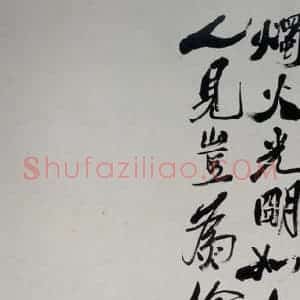 燭火光明如
人見豈
Shufaziliao.COM